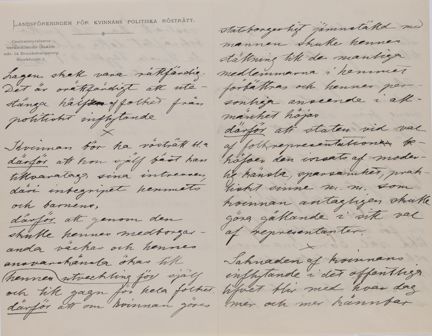 LANDSFÖRENINGEN FÖR KVINNANS POLITISKA RÖSTRÄTT.
Lagen skall vara rättfärdig.
Det är orättfärdigt att ute-
stänga hälften af folket från
politiskt inflytande
×
Kvinnan bör ha rösträtt bl a
därför att hon själf bäst kan
tillvarataga sina intressen,
däri inbegripet hemmets
och barnens,
därför att genom den
skulle hennes medborgar-
anda väckas och hennes
ansvarskänsla ökas till
hennes utveckling för själf
och till gagn för hela folket
därför att om kvinnan göres
statsborgerligt jämnställd med
mannen skulle hennes
ställning till de manliga
medlemmarna i hemmet
förbättras och hennes per-
sonliga anseende i all-
mänhet höjas
därför att staten vid val
af folkrepresentationen be-
höfver den insats af moder-
lig känsla, sparsamhet, prak-
tiskt sinne m. m. som
kvinnan antagligen skulle
göra gällande i sitt val
af representanter.
×
Saknaden af kvinnans
inflytande i det offentliga
lifvet blir med hvar dag
mer och mer kännbar